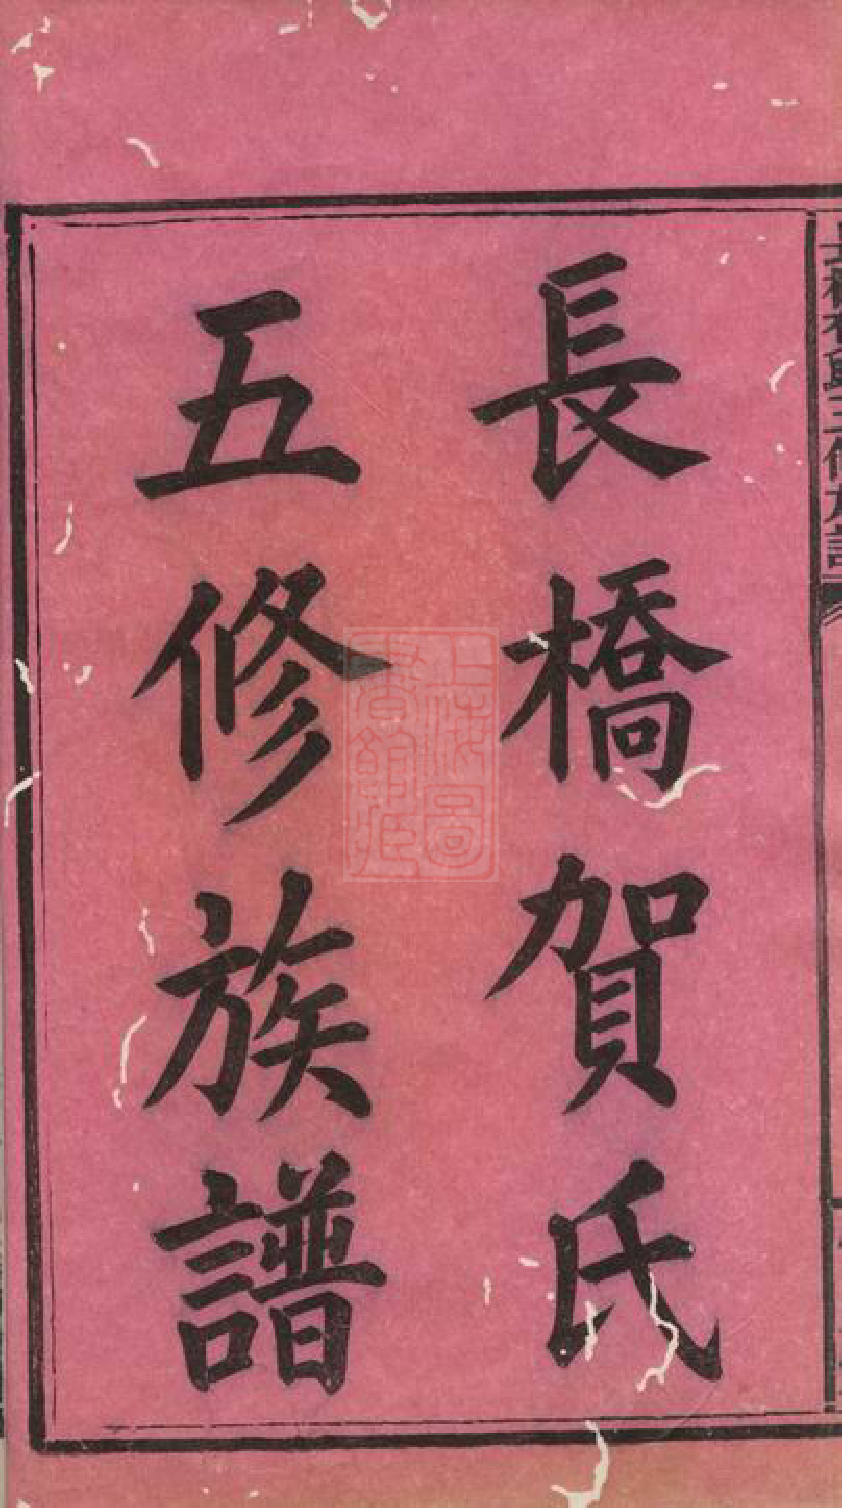 長橋賀氏
五修族譜
上海圖
書館藏